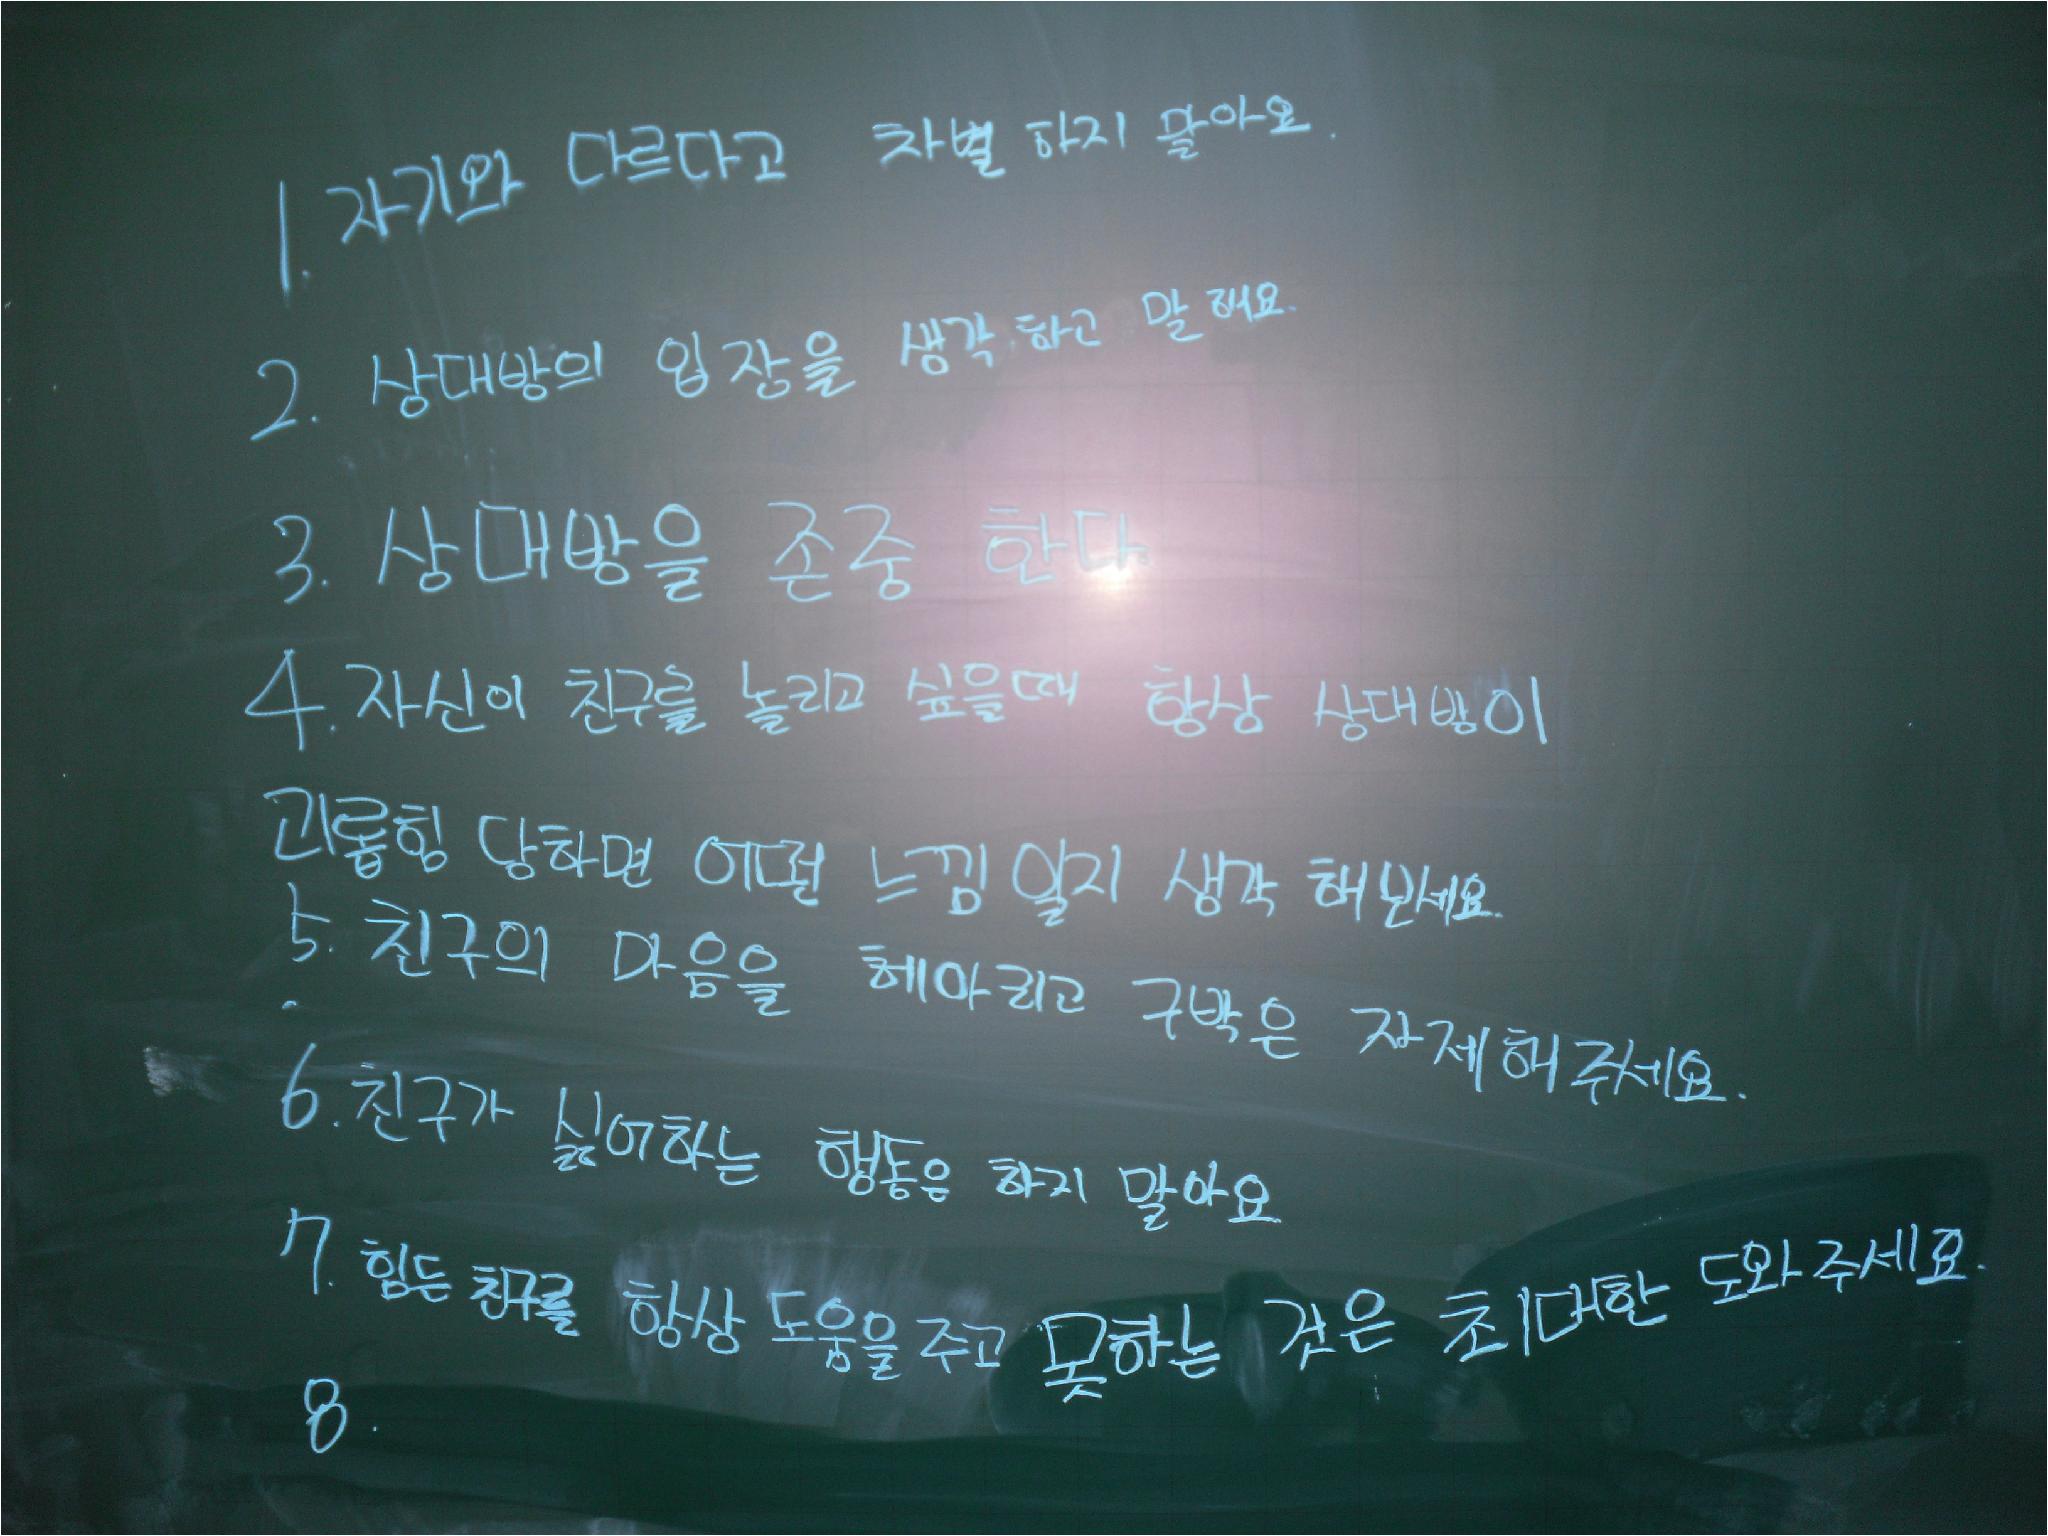 1. 자기와 다르다고 차별 하지 말아요.
2. 상대방의 입장을 생각 하고 말 해요.
3. 상대방을 존중 한다.
4. 자신이 친구를 놀리고 싶을때 항상 상대방이
괴롭힘 당하면 어떤 느낌 일지 생각 해보세요.
5. 친구의 마음을 헤아리고 구박은 자제해주세요.
6. 친구가 싫어하는 행동은 하지 말아요
7. 힘든 친구를 항상 도움을 주고 못하는 것은 최대한 도와주세요.
8.